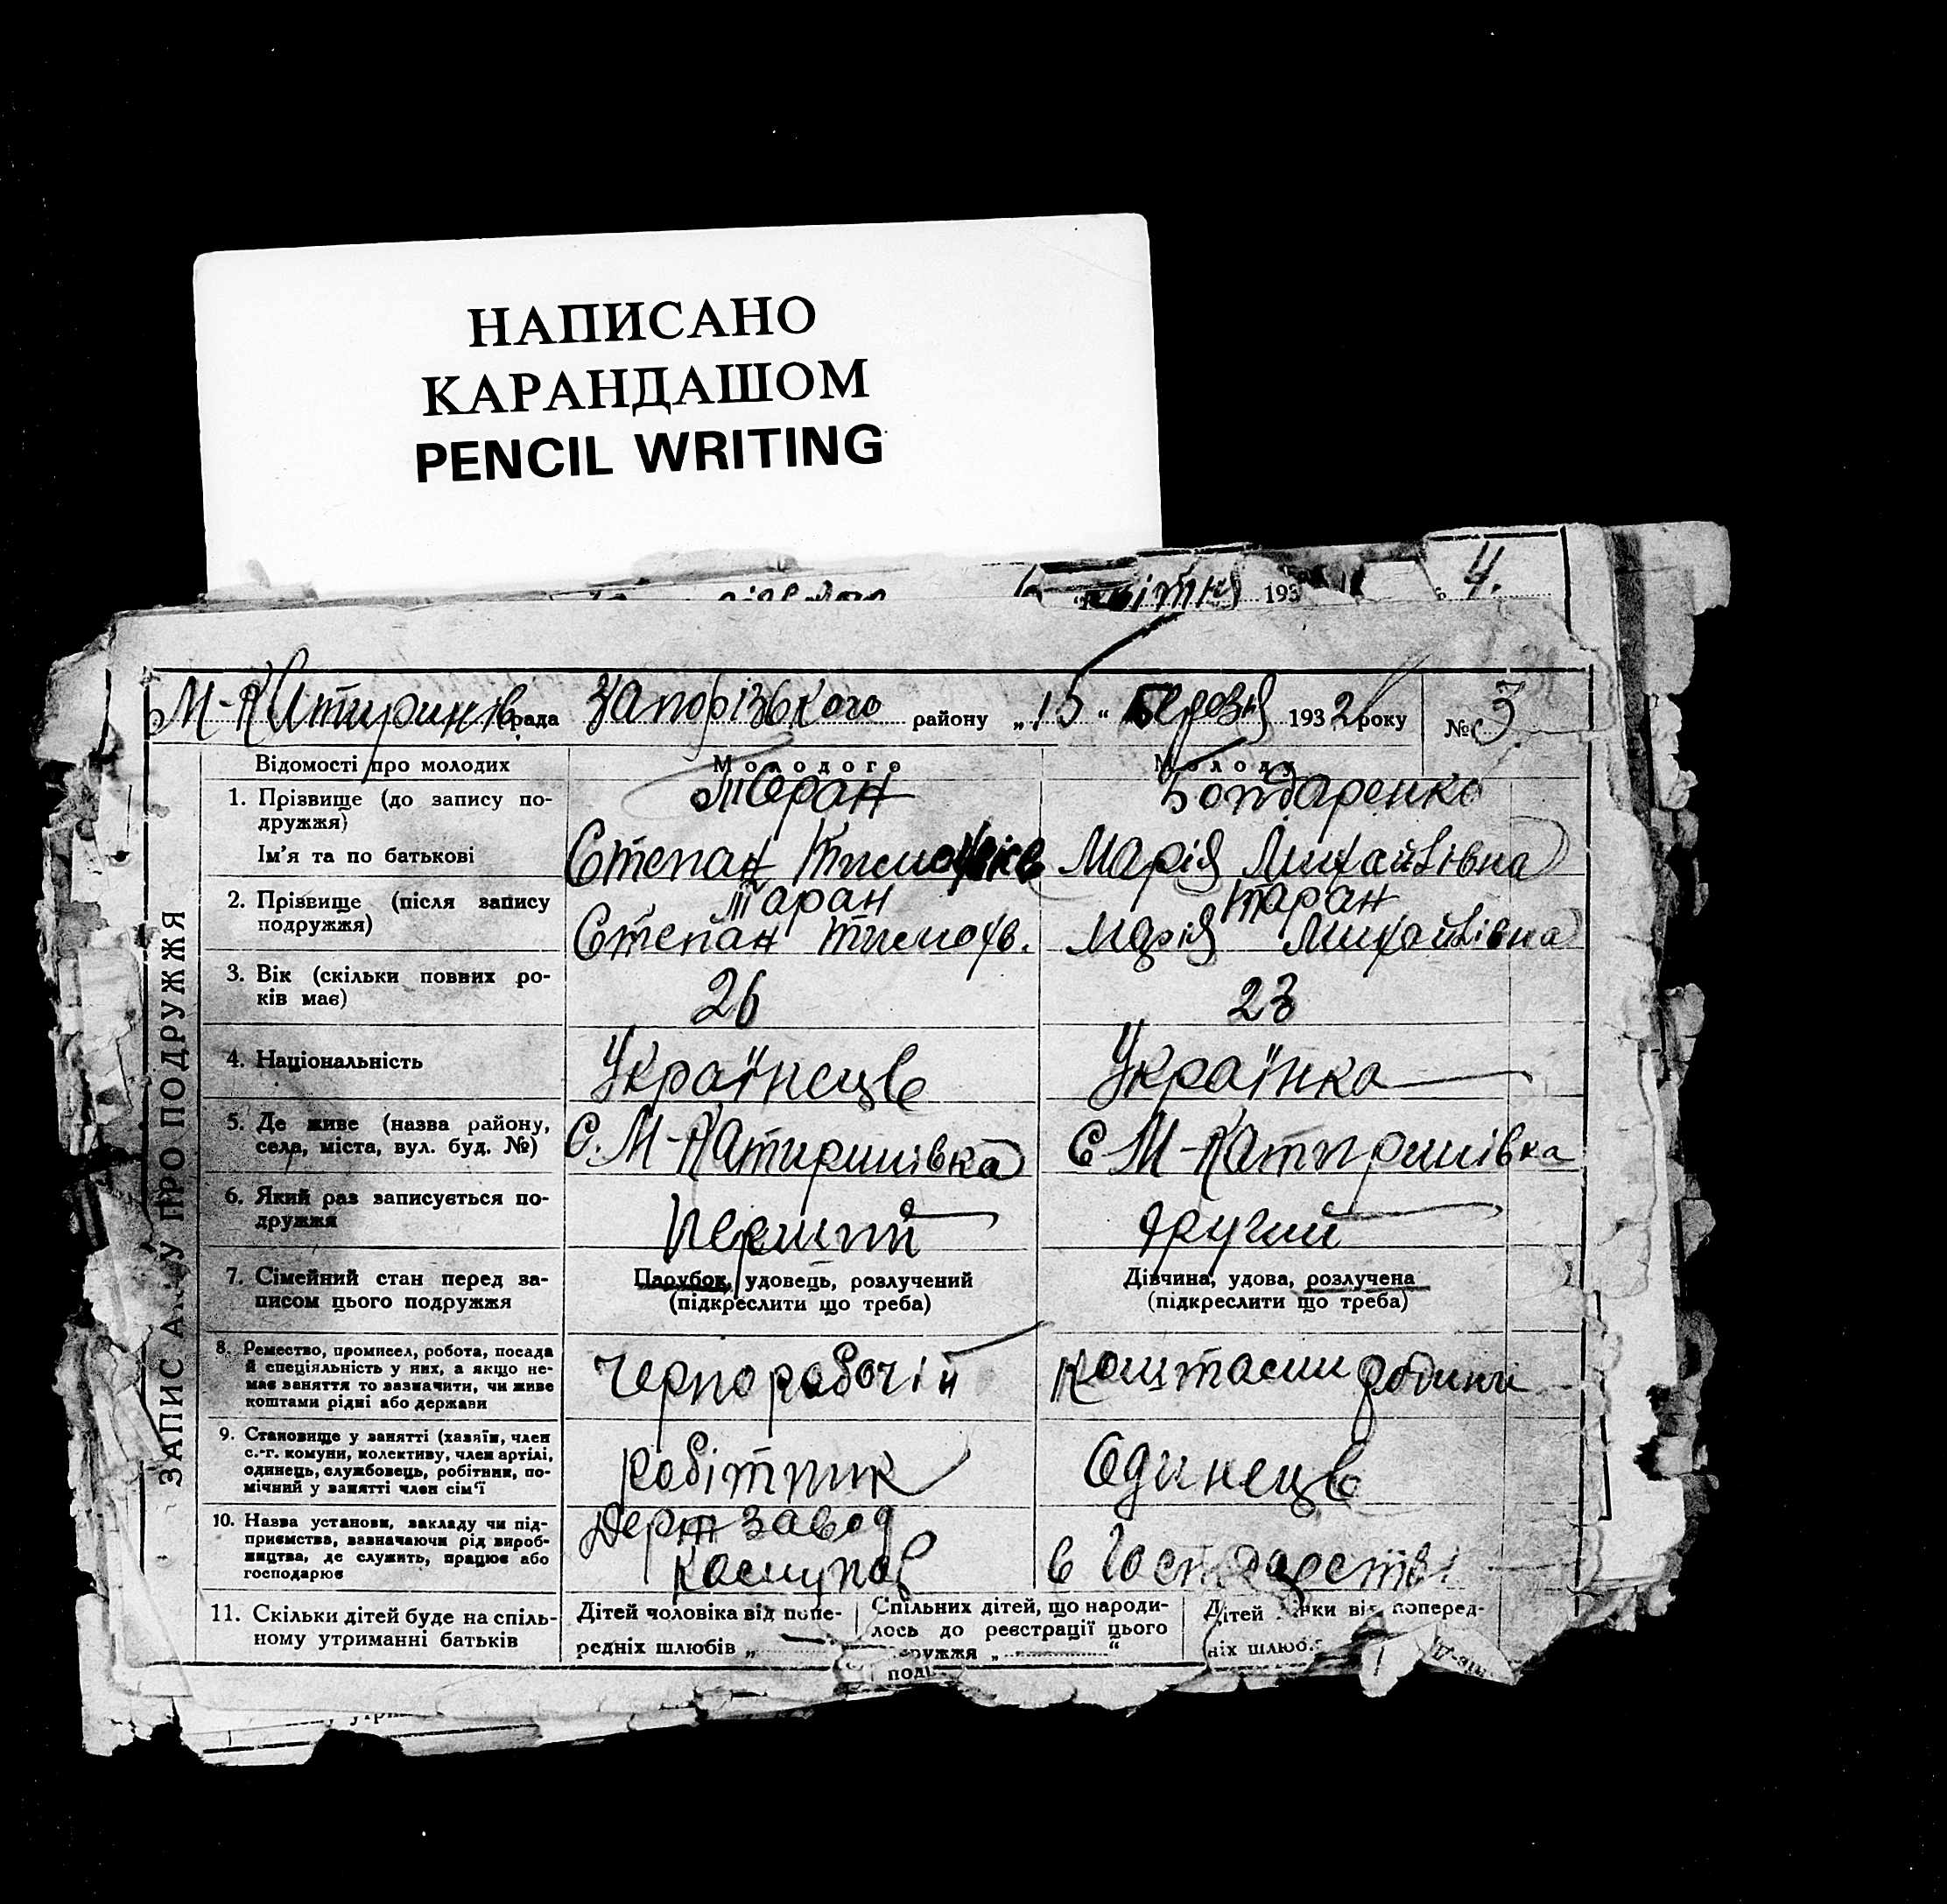 НАПИСАНО
КАРАНДАШОМ
PENCIL WRITING
193 4.
М-Катиринів рада Запорізького району „15“ Березня 1932 року №3
ЗАПИС АКТУ ПРО ПОДРУЖЖЯ
Відомості про молодих Молодого Молодої
1. Прізвище (до запису по-
дружжя)
Таран Бондаренко
Ім'я та по батькові Степан Марія Михайлівна
2. Прізвище (після запису
подружжя)
Таран Таран
Степан Тимофів. Марія Михайлівна
3. Вік (скільки повних ро-
ків має)
26 23
4. Національність Українець Українка
5. Де живе (назва району,
села, міста, вул. буд. №)
С. М-Катиринівка С М-Катиринівка
6. Який раз записується по-
дружжя
Перший другий
7. Сімейний стан перед за-
писом цього подружжя
Парубок, удовець, розлучений
(підкреслити що треба)
Дівчина, удова, розлучена
(підкреслити що треба)
8. Ремество, промисел, робота, посада
й спеціяльність у них, а якщо не-
має заняття то зазначити, чи живе
коштами рідні або держави
Чернорабочій коштами родини
9. Становище у занятті (хазяїн, член
с.-г. комуни, колективу, член артілі,
одинець, службовець, робітник, по-
мічний у занятті член сім'ї
робітник Одинець
10. Назва установи, закладу чи під-
приємства, зазначаючи рід вироб-
ництва, де служить, працює або
господарює
завод
в Господарстві
11. Скільки дітей буде на спіль-
ному утриманні батьків
Дітей чоловіка від попе-
редніх шлюбів „
Спільних дітей, що народи-
лось до реєстрації цього
подружжя „ “
Дітей жінки від поперед-
ніх шлюб.